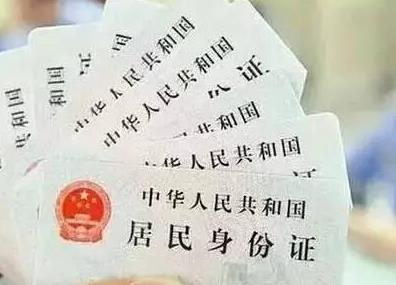 中华人民共和国
中华人民共和国
中华人民共和国
份证
中华人民共和国
证
中华人民共和国
居民身份证